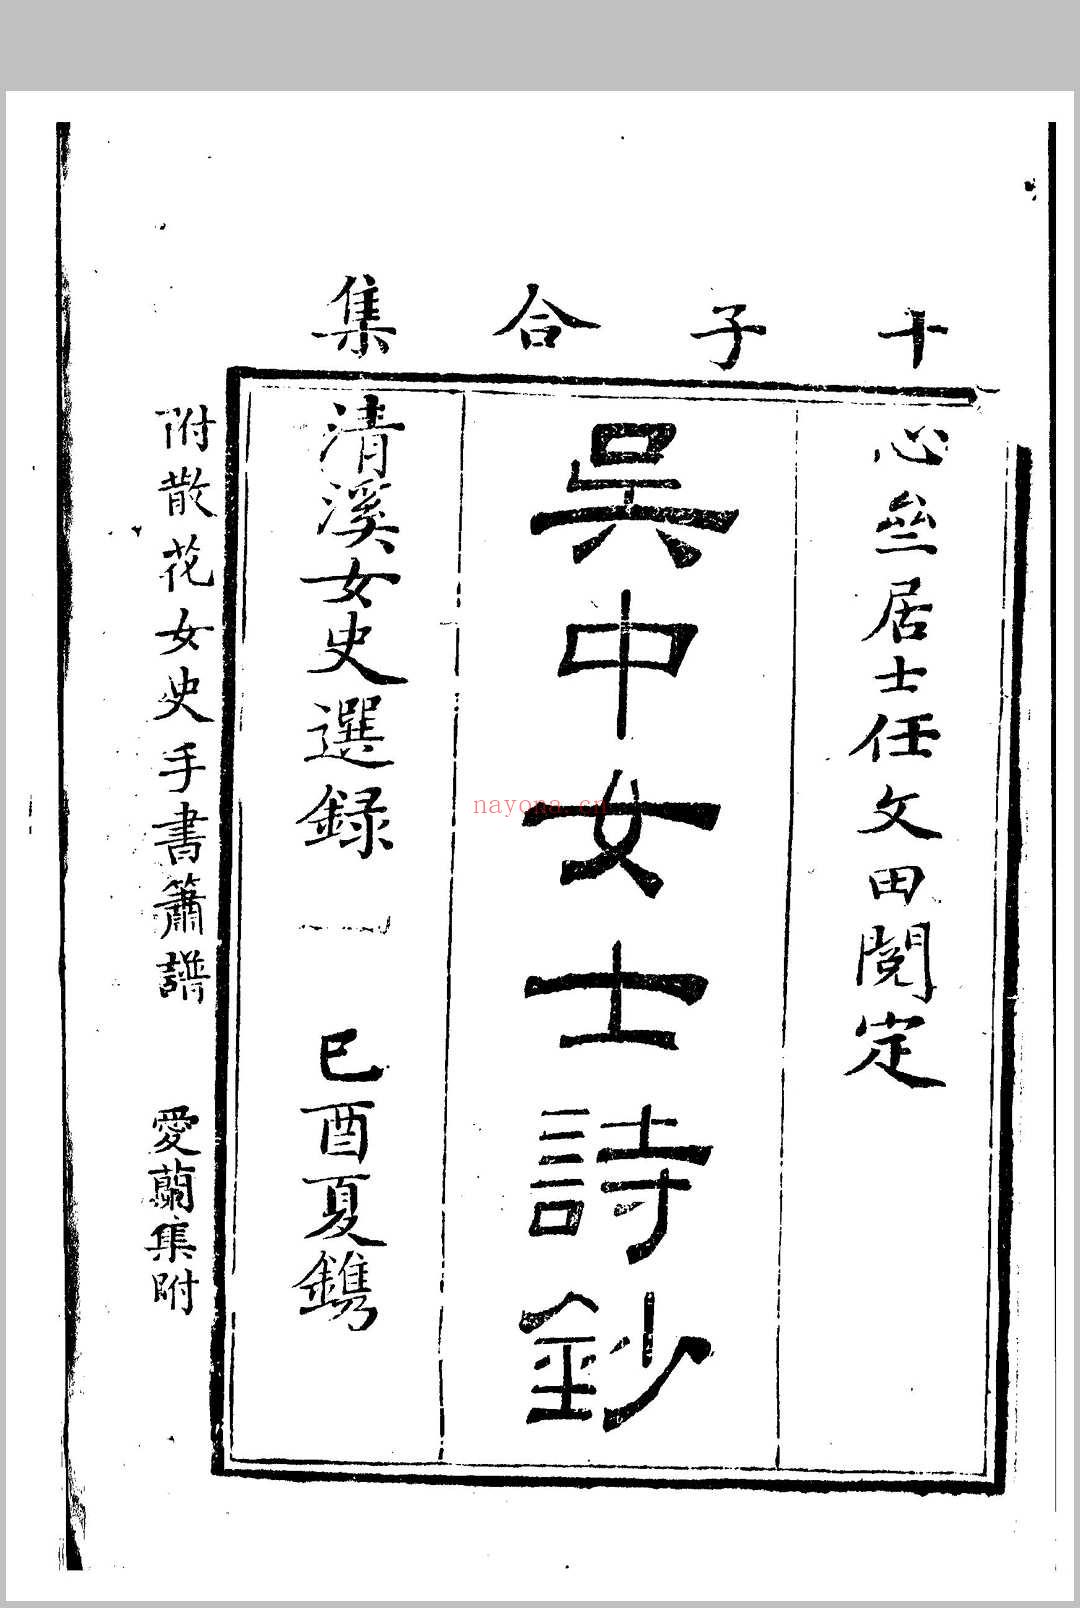 十子合集
心𡌴居士任文田閱定
吳中女士詩鈔
清溪女史選錄 己酉夏鐫
附散花女史手書簫譜 愛蘭集附
nayona.cn